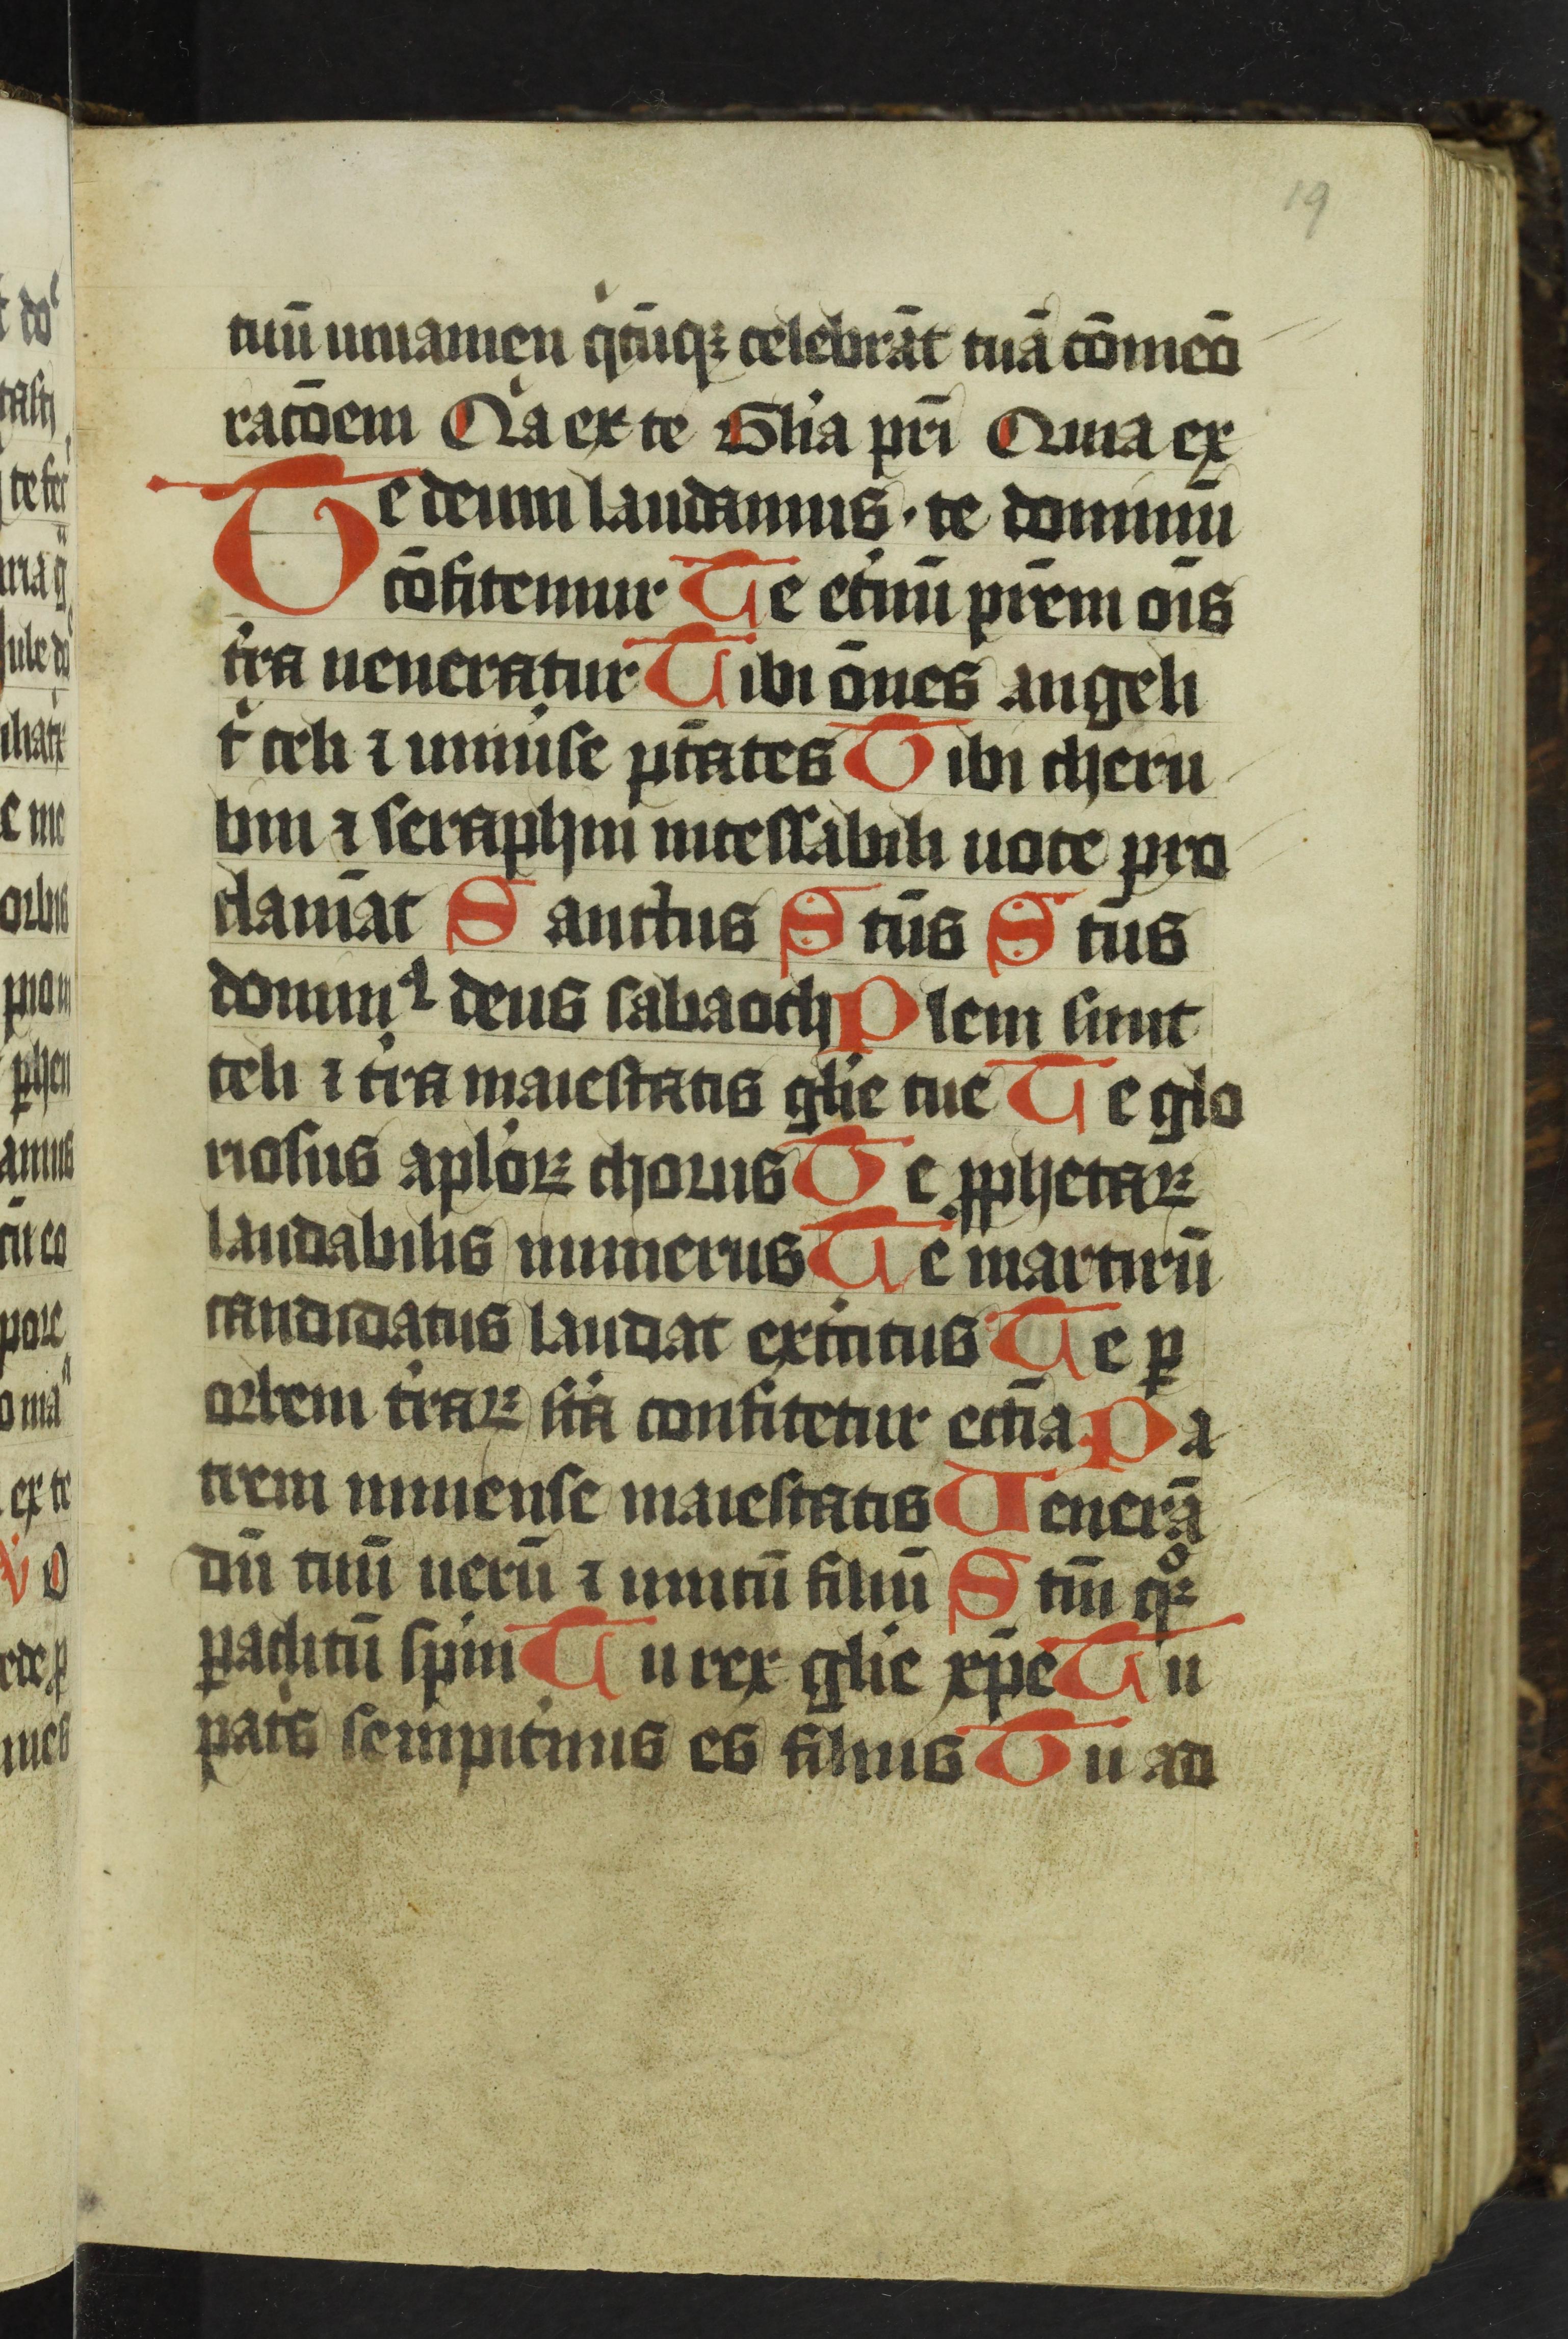 19
tuū iuuamen q̇cūqꝫ celebrāt tuā cōmēo
racōem Qȧa ex te Gl'ia pr̄i Quia ex
Te deum laudamus · te dominū
cōfitemur Te et'nū pr̄em oīs
t'ra ueneratur Tibi ōnes angeli
t' celi ⁊ uniu'se ptātes Tibi cheru
bin ⁊ seraphin incessabili uoce pro
clamāt Sanctus Sc̄tus Sc̄tus
dominꝰ deus sabaoth Pleni sunt
celi ⁊ t'ra maiestatis gl'ie tue Te glo
riosus apl'oꝝ chorus Te ꝓphetaꝝ
laudabilis numerus Te martirū
candidatus laudat ex'citus Te ꝑ
orbem t'raꝝ sc̄a confitetur ecc̄ia Pa
trem inmense maiestatis Uenerā
dū tuū uerū ⁊ unicū filiū Sc̄m qͦꝫ
paclitū sp̄m Tu rex gl'ie xp̄e Tu
pat's sempit'nus es filius Tu ad